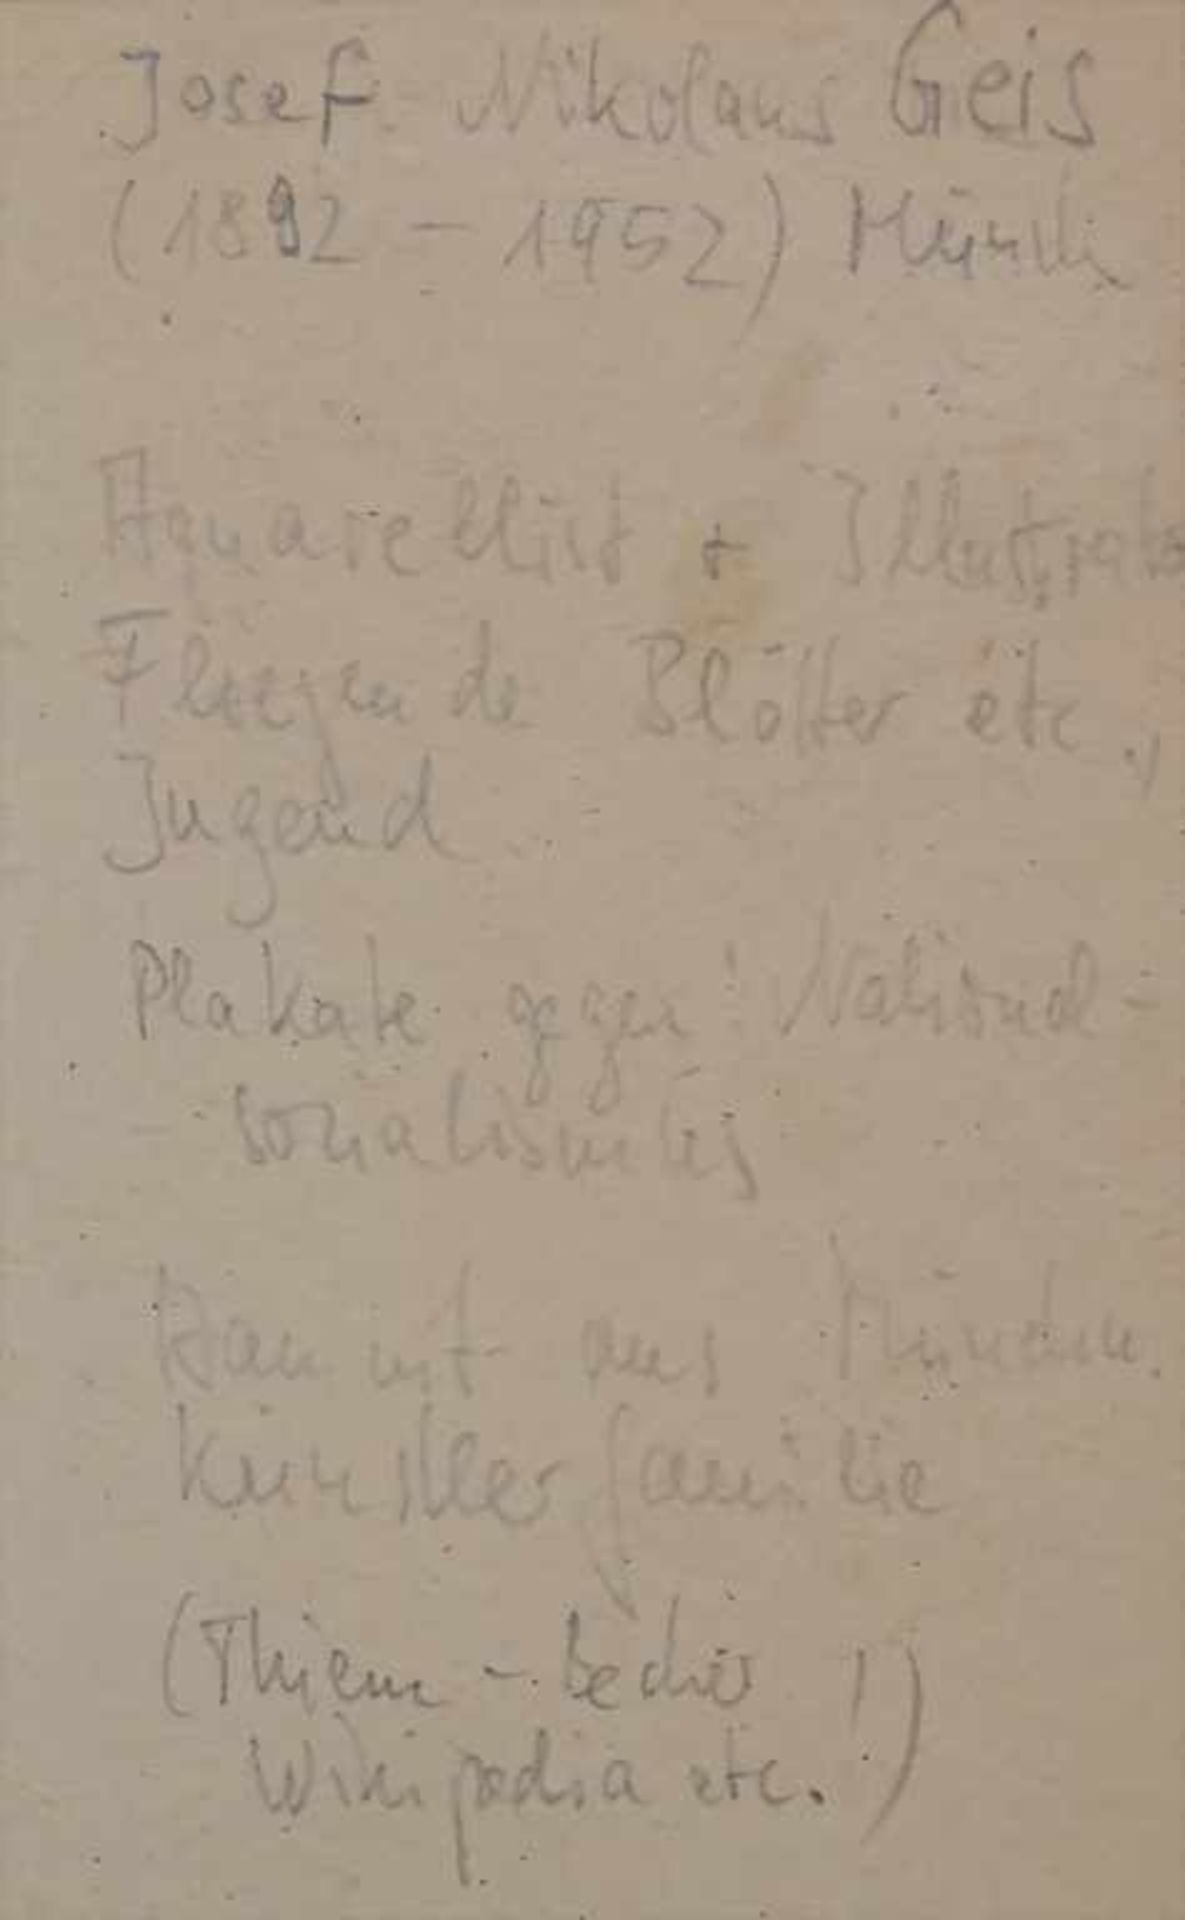 Josef Nikolaus Geis
(1892 – 1952) Münch
Aquarellist + Illustrator
Fliegende Blätter etc.,
Jugend
Plakate gegen National-
sozialismus
aus München.
Künstlerfamilie
(Thieme - Becker !)
Wikipedia etc.